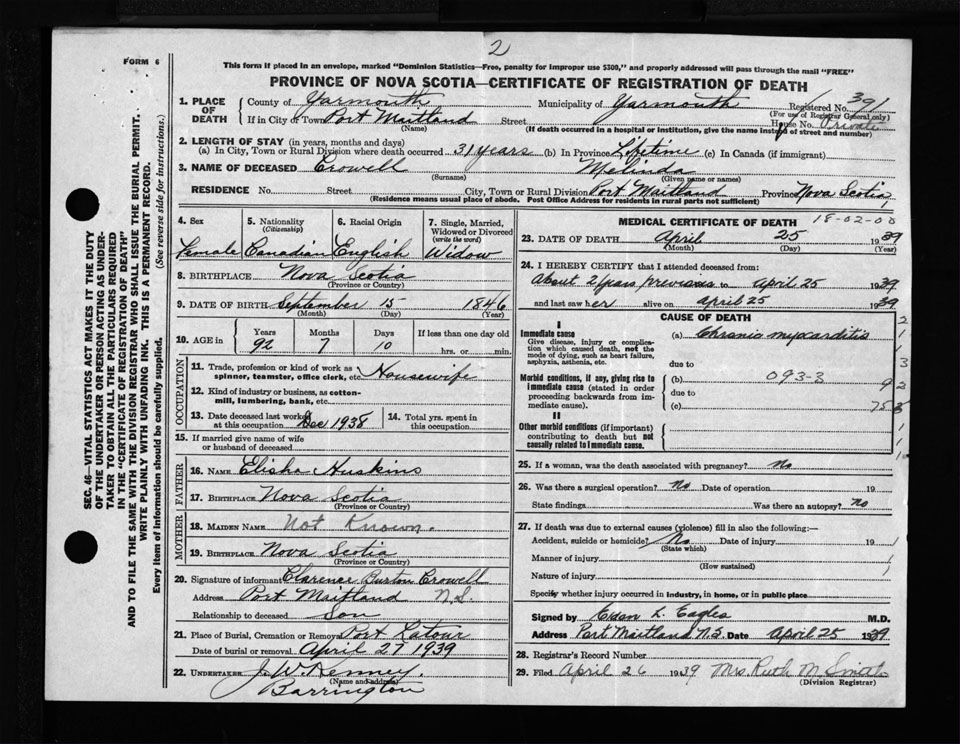 2
FORM 6
This form if placed in an envelope, marked "Dominion Statistics—Free, penalty for improper use $300," and properly addressed will pass through the mail "FREE"
PROVINCE OF NOVA SCOTIA—CERTIFICATE OF REGISTRATION OF DEATH
SEC. 46—VITAL STATISTICS ACT MAKES IT THE DUTY
OF THE UNDERTAKER OR PERSON ACTING AS UNDER-
TAKER TO OBTAIN ALL THE PARTICULARS REQUIRED
IN THE "CERTIFICATE OF REGISTRATION OF DEATH"
AND TO FILE THE SAME WITH THE DIVISION REGISTRAR WHO SHALL ISSUE THE BURIAL PERMIT.
WRITE PLAINLY WITH UNFADING INK. THIS IS A PERMANENT RECORD.
Every item of information should be carefully supplied. (See reverse side for instructions.)
1. PLACE OF DEATH County of Yarmouth Municipality of Yarmouth Registered No. 391
(For use of Registrar General only)
If in City or Town Port Maitland Street House No. Private
(Name) (If death occurred in a hospital or institution, give the name instead of street and number)
2. LENGTH OF STAY (in years, months and days)
(a) In City, Town or Rural Division where death occurred 31 years (b) In Province Lifetime (c) In Canada (if immigrant)
3. NAME OF DECEASED Crowell Melinda
(Surname) (Given name or names)
RESIDENCE No. Street City, Town or Rural Division Port Maitland Province Nova Scotia
(Residence means usual place of abode. Post Office Address for residents in rural parts not sufficient)
4. Sex 5. Nationality (Citizenship) 6. Racial Origin 7. Single, Married, Widowed or Divorced (write the word)
Female Canadian English Widow
8. BIRTHPLACE Nova Scotia
(Province or Country)
9. DATE OF BIRTH September 15 1846
(Month) (Day) (Year)
10. AGE in Years Months Days If less than one day old
92 7 10 hrs. or min.
OCCUPATION
11. Trade, profession or kind of work as spinner, teamster, office clerk, etc. Housewife
12. Kind of industry or business, as cotton-mill, lumbering, bank, etc.
13. Date deceased last worked at this occupation Dec 1938 14. Total yrs. spent in this occupation
15. If married give name of wife or husband of deceased
FATHER
16. NAME Elisha Huskins
17. BIRTHPLACE Nova Scotia
(Province or Country)
MOTHER
18. MAIDEN NAME Not Known.
19. BIRTHPLACE Nova Scotia
(Province or Country)
20. Signature of informant Clarence Burton Crowell
Address Port Maitland N.S.
Relationship to deceased Son
21. Place of Burial, Cremation or Removal Port Latour
Date of burial or removal April 27 1939
22. UNDERTAKER J. W. Kenney.
(Name and address)
Barrington
MEDICAL CERTIFICATE OF DEATH 18-02-00
23. DATE OF DEATH April 25 1939
(Month) (Day) (Year)
24. I HEREBY CERTIFY that I attended deceased from:
About 2 years previous to april 25 1939
and last saw her alive on april 25 1939
CAUSE OF DEATH
I
Immediate cause (a) Chronic mycarditis
Give disease, injury or complication which caused death, not the mode of dying, such as heart failure, asphyxia, asthenia, etc.
due to
Morbid conditions, if any, giving rise to immediate cause (stated in order proceeding backwards from immediate cause).
(b) 093-3
due to
(c)
II
Other morbid conditions (if important) contributing to death but not causally related to immediate cause.
25. If a woman, was the death associated with pregnancy? No
26. Was there a surgical operation? No Date of operation 19
State findings Was there an autopsy? No
27. If death was due to external causes (violence) fill in also the following:—
Accident, suicide or homicide? No Date of injury 19
(State which)
Manner of injury
(How sustained)
Nature of injury
Specify whether injury occurred in industry, in home, or in public place
Signed by Eldon L. Eagles M.D.
Address Port Maitland N.S. Date April 25 1939
28. Registrar's Record Number
29. Filed April 26 1939 Mrs. Ruth M. Smith
(Division Registrar)